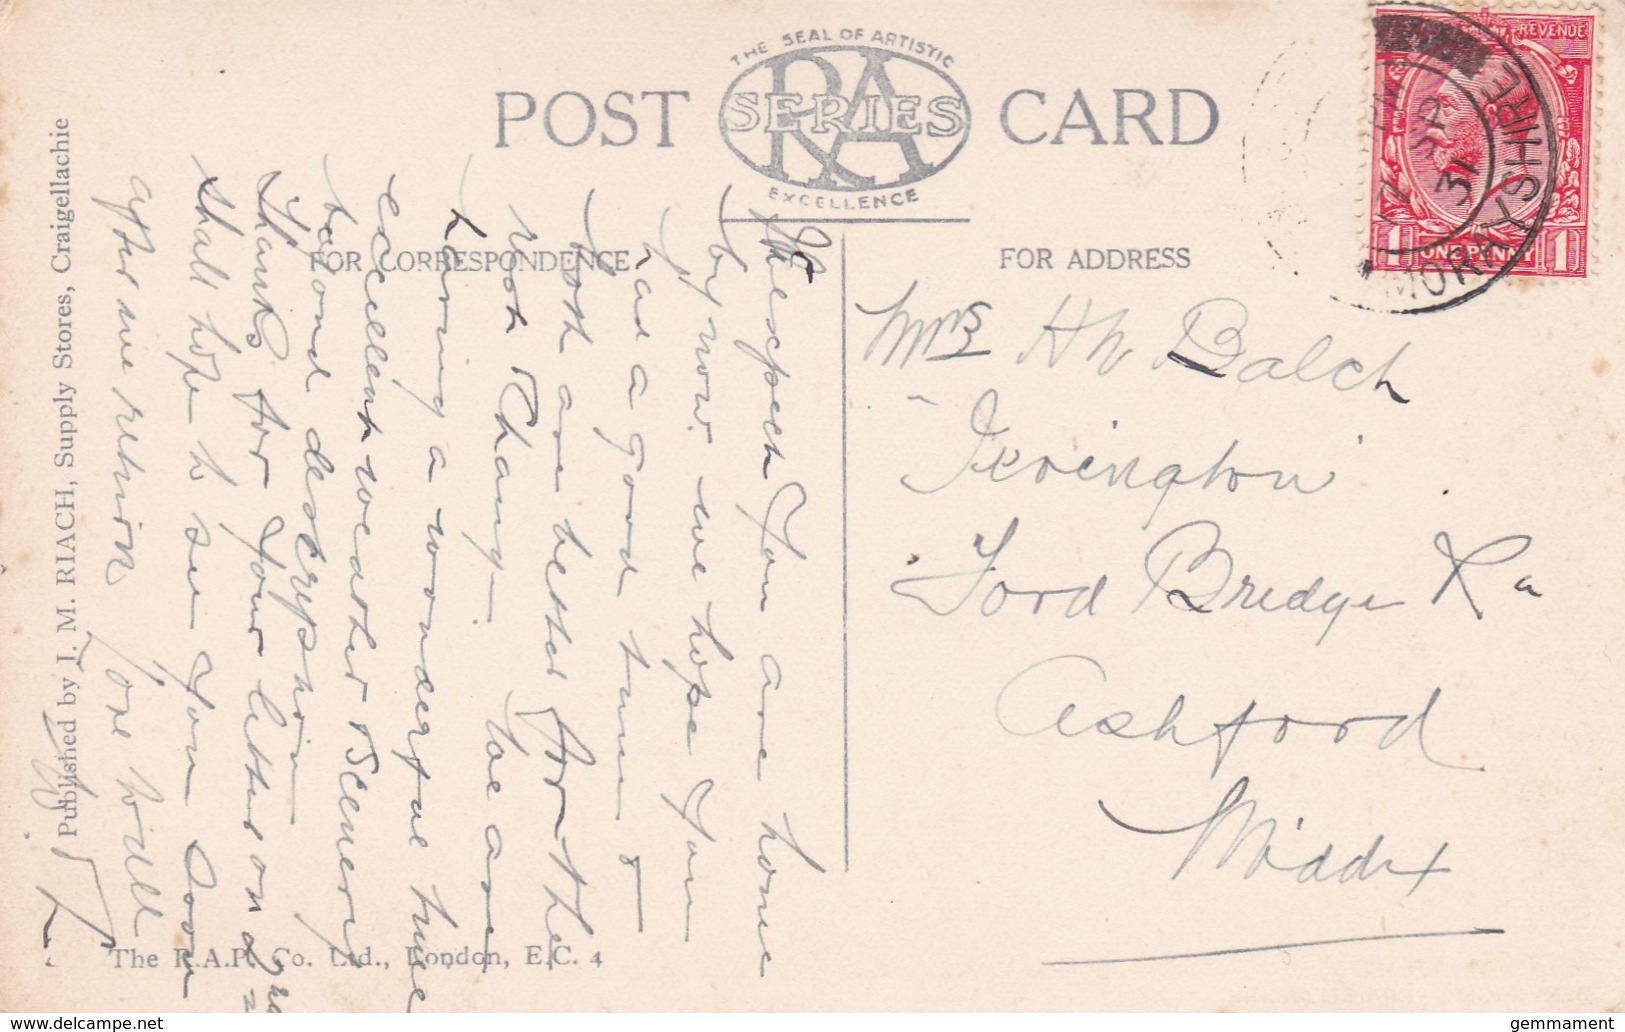 THE SEAL OF ARTISTIC
POST CARD
RA
SERIES
EXCELLENCE
FOR CORRESPONDENCE
FOR ADDRESS
REVENUE
1 ONE PENNY 1
MORAYSHIRE
17 SP
31
Mrs H W Balch
Ford Bridge Rd
Ashford
Middx
We expect you are home
by now, we hope you
had a good time &
both are better for the
rest & change. We are
having a wonderful time
excellent weather & scenery
beyond description
Thanks for your letter on 2nd
shall hope to see you soon
after we return
Published by J. M. RIACH, Supply Stores, Craigellachie
The R.A.P. Co. Ltd., London, E.C. 4
www.delcampe.net
gemmament